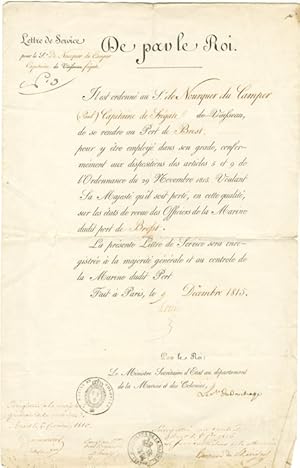 Lettre de Service
pour le Sr. de Nourquer du Camper
Capitaine de Frégate
De par le Roi.
Il est ordonné au Sr. de Nourquer du Camper
(Paul) Capitaine de Frégate de Vaisseau,
de se rendre au Port de Brest
pour y être employé dans son grade, confor-
mément aux dispositions des articles 8 et 9 de
l'Ordonnance du 29 Novembre 1815. Voulant
Sa Majesté qu'il soit porté, en cette qualité,
sur les états de revue des Officiers de la Marine
dudit port de Brest.
La présente Lettre de Service sera enre-
gistrée à la majorité générale et au contrôle de
la Marine dudit Port
Fait à Paris, le 9 Décembre 1815.
Par le Roi:
Le Ministre Secrétaire d'Etat au département
de la Marine et des Colonies,